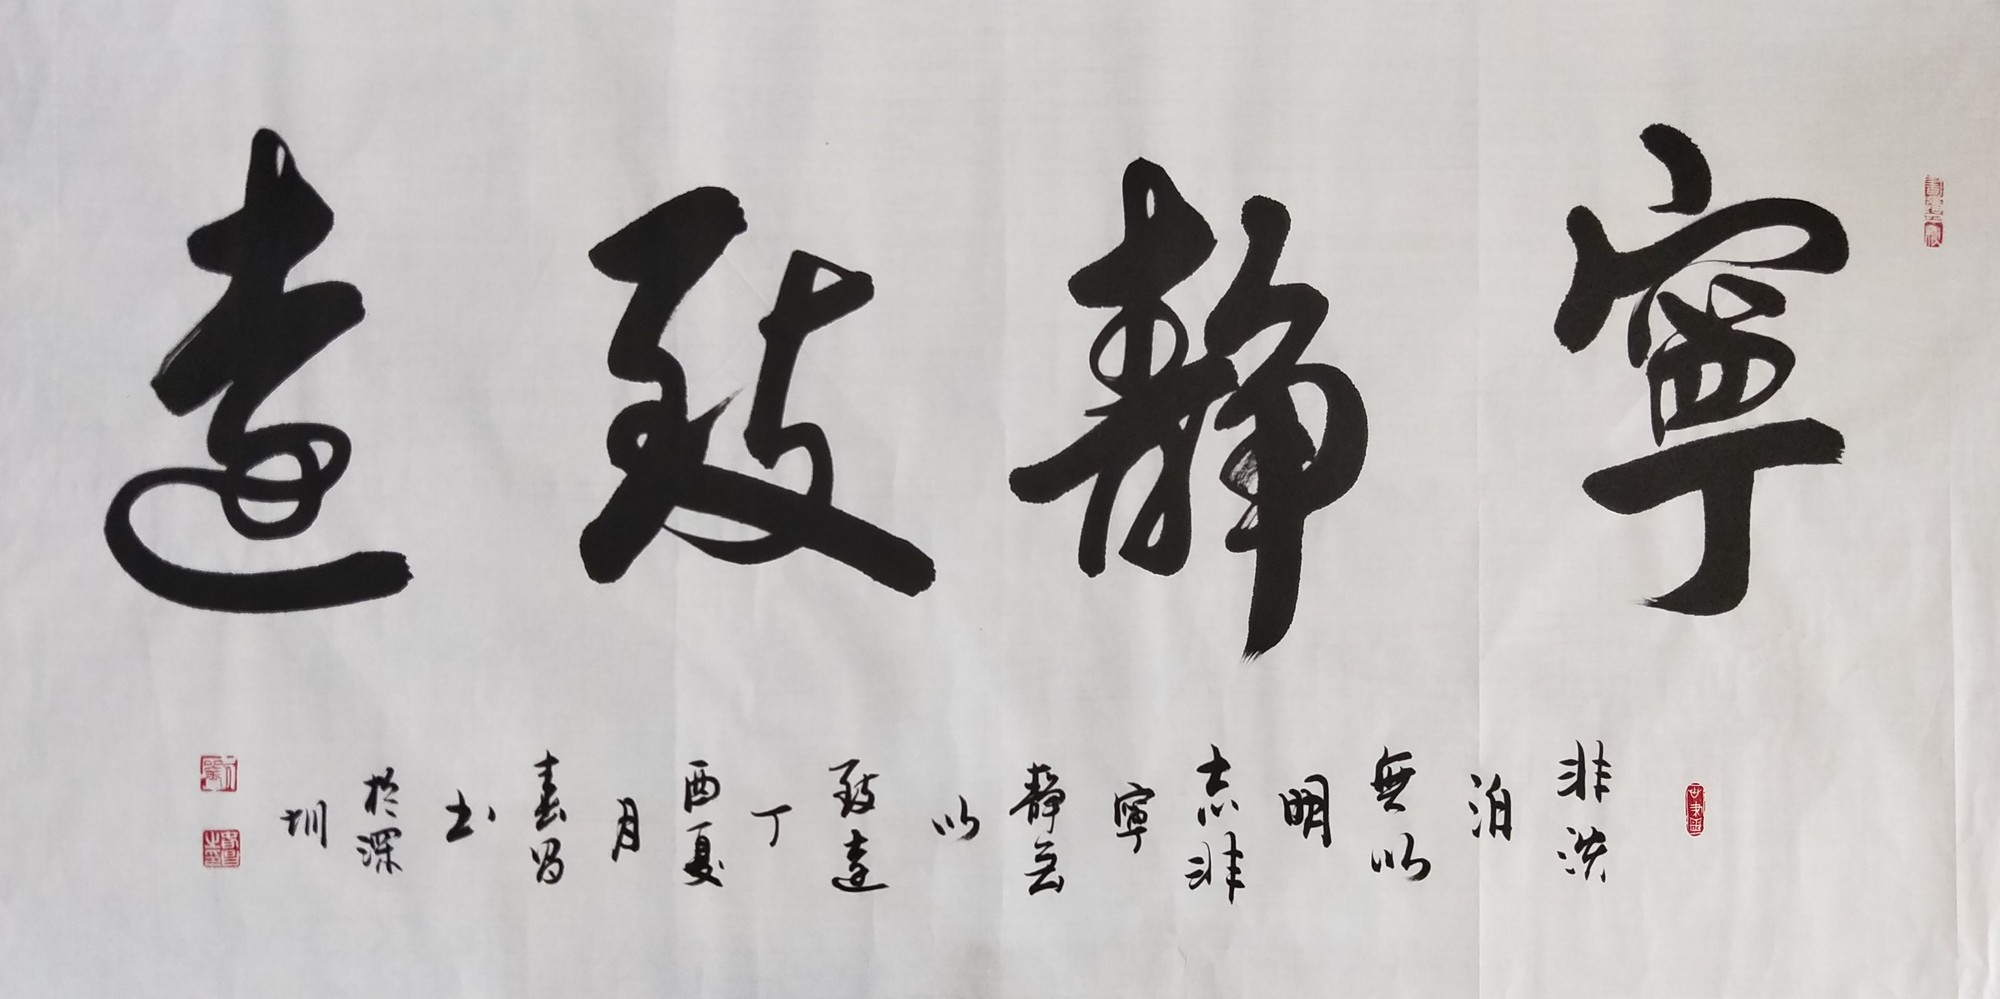 寧靜致遠
非淡泊無以明志非寧靜無以致遠丁酉夏月春昌书於深圳